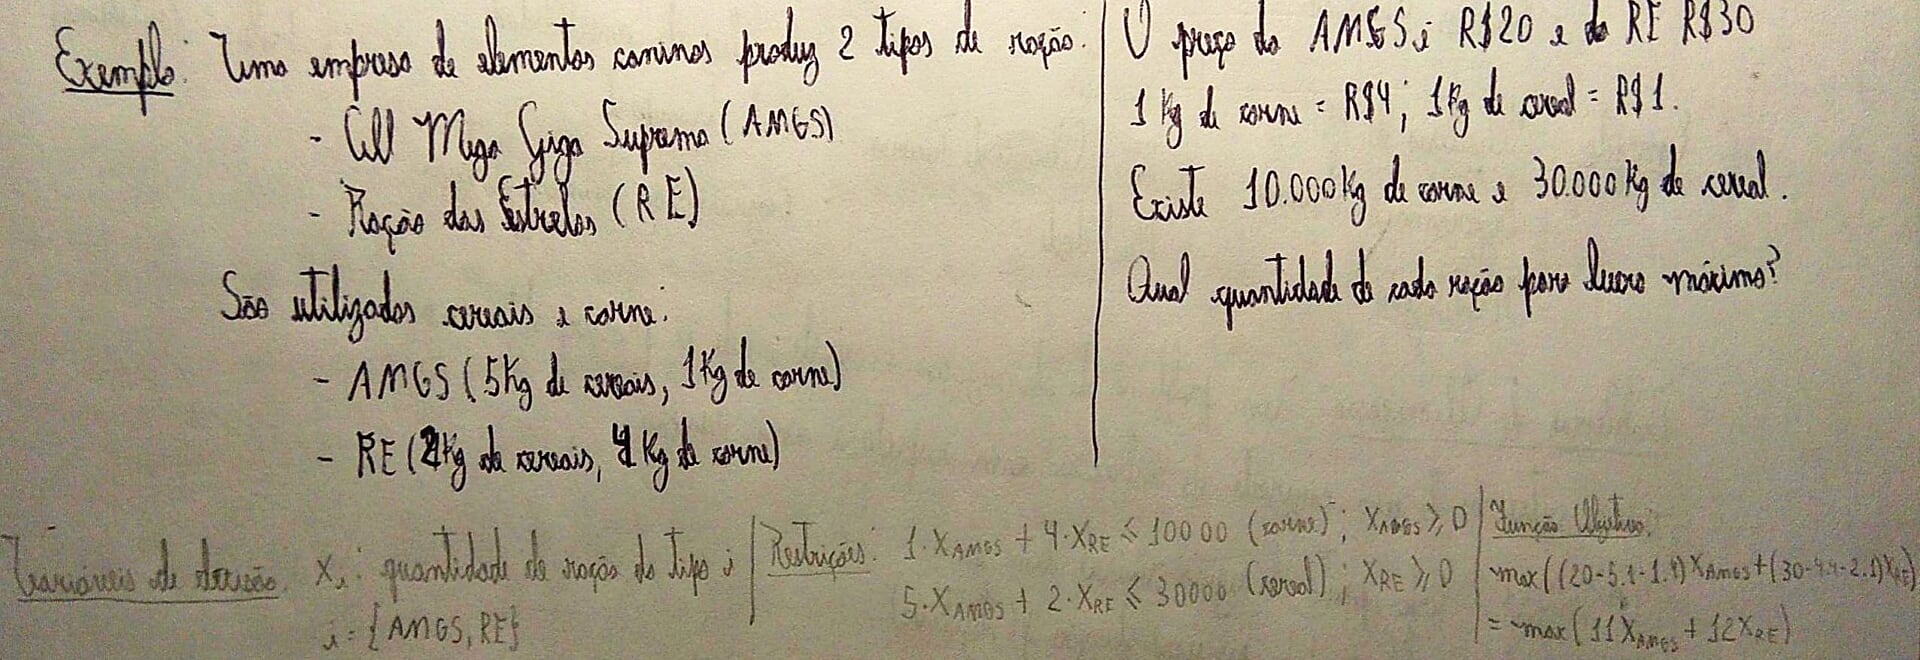 Exemplo: Uma empresa de elementos caninos produz 2 tipos de ração:
- All Mega Giga Suprema (AMGS)
- Ração das Estrelas (RE)
São utilizados cereais e carne:
- AMGS (5Kg de cereais, 1Kg de carne)
- RE (2Kg de cereais, 4Kg de carne)
O preço do AMGS é R$20 e do RE R$30
1 Kg de carne = R$4; 1Kg de cereal = R$1.
Existe 10.000Kg de carne e 30.000Kg de cereal.
Qual quantidade de cada ração para lucro máximo?
Variáveis de decisão. Xi: quantidade de ração do tipo i
i = {AMGS, RE}
Restrições: 1·XAMGS + 4·XRE ≤ 10000 (carne); XAMGS ≥ 0
5·XAMGS + 2·XRE ≤ 30000 (cereal); XRE ≥ 0
Função Objetivo:
max((20-5.1-1.4)XAMGS+(30-4.4-2.1)XRE)
= max(11XAMGS + 12XRE)